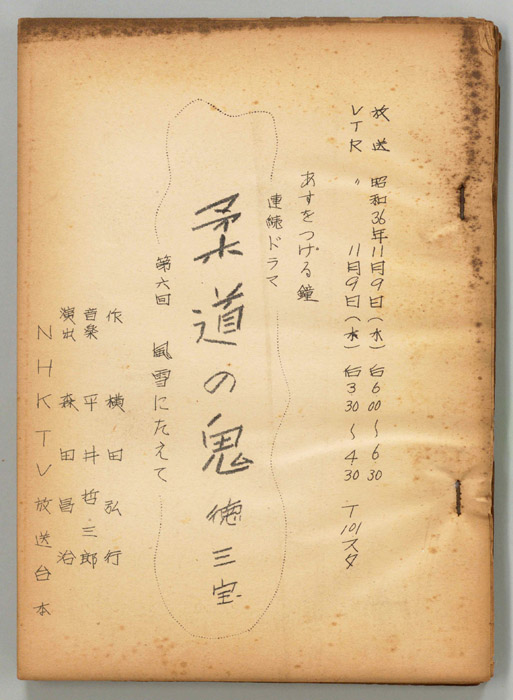 放送 昭和36年11月9日(水) 后6 00～6 30
VTR 〃 11月9日(水) 后3 30～4 30 T101スタ
あすをつげる鐘
連続ドラマ
柔道の鬼 徳三宝
第六回 風雪にたえて
作 横田弘行
音楽 平井哲三郎
演出 森田昌治
NHKTV放送台本